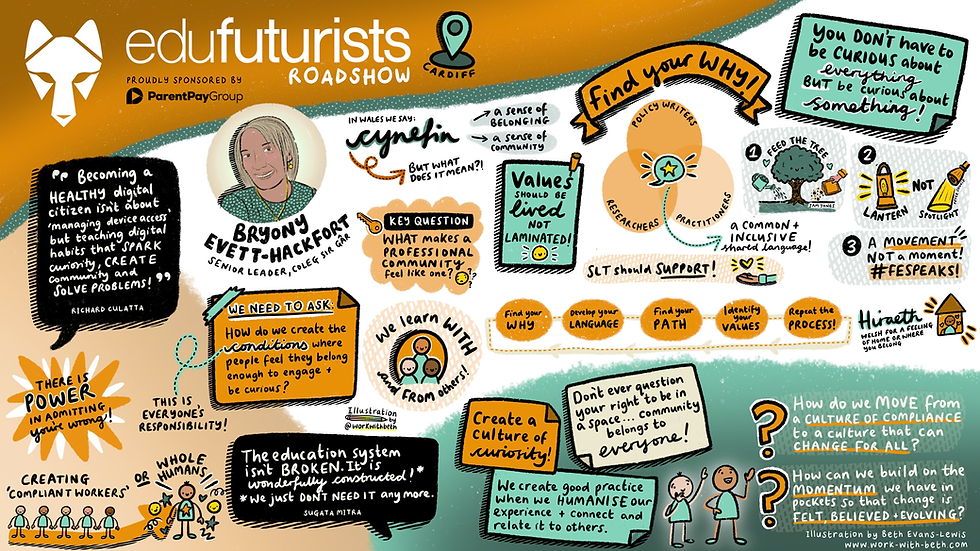 edufuturists
ROADSHOW
PROUDLY SPONSORED BY
ParentPayGroup
CARDIFF
"Becoming a
HEALTHY digital
citizen isn't about
'managing device access',
but teaching digital
habits that SPARK
curiosity, CREATE
community and
SOLVE PROBLEMS!"
RICHARD CULATTA
BRYONY
EVETT-HACKFORT
SENIOR LEADER, COLEG SIR GÂR
IN WALES WE SAY:
cynefin
a sense of
BELONGING
a sense of
COMMUNITY
BUT WHAT
DOES IT MEAN?!
KEY QUESTION
WHAT makes a
PROFESSIONAL
COMMUNITY
feel like one?
Values
SHOULD BE
lived
NOT
LAMINATED!
find your WHY!
POLICY WRITERS
RESEARCHERS
PRACTITIONERS
a COMMON +
INCLUSIVE
shared language!
SLT should SUPPORT!
YOU DON'T have to
be CURIOUS about
everything
BUT be curious about
something!
1
FEED THE TREE
SAM JONES
2
LANTERN
NOT
SPOTLIGHT
3
A MOVEMENT,
NOT a moment!
#FESPEAKS!
WE NEED TO ASK:
HOW do we create the
conditions where
people feel they belong
enough to engage +
be curious?
We learn WITH
and FROM others!
Find your
WHY
Develop your
LANGUAGE
Find your
PATH
Identify
your
VALUES
Repeat the
PROCESS!
Hiraeth
WELSH FOR A FEELING
OF HOME OR WHERE
YOU BELONG
THERE IS
POWER
IN ADMITTING
you're wrong!
THIS IS
EVERYONE'S
RESPONSIBILITY!
Illustration
by
@workwithbeth
CREATING
'COMPLIANT WORKERS'
OR
WHOLE
HUMANS!!
The education system
isn't BROKEN. It is
wonderfully constructed!*
*We just DON'T NEED IT any more.
SUGATA MITRA
Create a
CULTURE of
curiosity!
Don't ever question
your right to be in
a space... community
belongs to
everyone!
We create good practice
when we HUMANISE our
experience + connect and
relate it to others.
?
How do we MOVE from
a CULTURE OF COMPLIANCE
to a culture that can
CHANGE FOR ALL?
?
How can we build on the
MOMENTUM we have in
pockets so that change is
FELT, BELIEVED + EVOLVING?
Illustration by Beth Evans-Lewis
www.work-with-beth.com